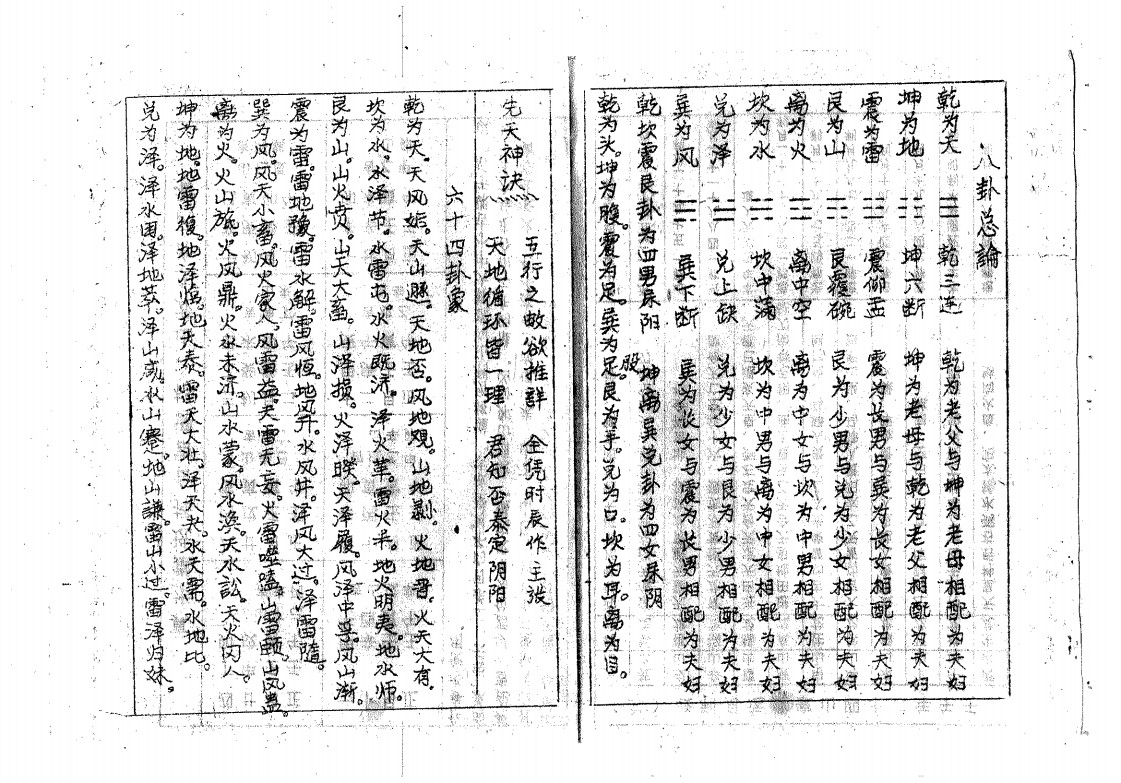 八卦总論
乾为天 ☰ 乾三连 乾为老父与坤为老母相配为夫妇
坤为地 ☷ 坤六断 坤为老母与乾为老父相配为夫妇
震为雷 ☳ 震仰盂 震为长男与巽为长女相配为夫妇
艮为山 ☶ 艮覆碗 艮为少男与兑为少女相配为夫妇
离为火 ☲ 离中空 离为中女与坎为中男相配为夫妇
坎为水 ☵ 坎中满 坎为中男与离为中女相配为夫妇
兑为泽 ☱ 兑上缺 兑为少女与艮为少男相配为夫妇
巽为风 ☴ 巽下断 巽为长女与震为长男相配为夫妇
乾坎震艮卦为四男属阳 坤离巽兑卦为四女属阴
乾为头。坤为腹。震为足。巽为足。股 艮为手。兑为口。坎为耳。离为目。
先天神诀
五行之敝欲推群 全凭时辰作主张
天地循环皆一理 君知否泰定阴阳
六十四卦象
乾为天。天风姤。天山遯。天地否。风地观。山地剥。火地晋。火天大有。
坎为水。水泽节。水雷屯。水火既济。泽火革。雷火丰。地火明夷。地水师。
艮为山。山火贲。山天大畜。山泽损。火泽睽。天泽履。风泽中孚。风山渐。
震为雷。雷地豫。雷水解。雷风恒。地风升。水风井。泽风大过。泽雷隨。
巽为风。风天小畜。风火家人。风雷益。天雷无妄。火雷噬嗑。山雷頤。山风蛊。
离为火。火山旅。火风鼎。火水未济。山水蒙。风水涣。天水訟。天火同人。
坤为地。地雷復。地泽临。地天泰。雷天大壮。泽天夬。水天需。水地比。
兑为泽。泽水困。泽地萃。泽山咸。水山蹇。地山謙。雷山小过。雷泽归妹。